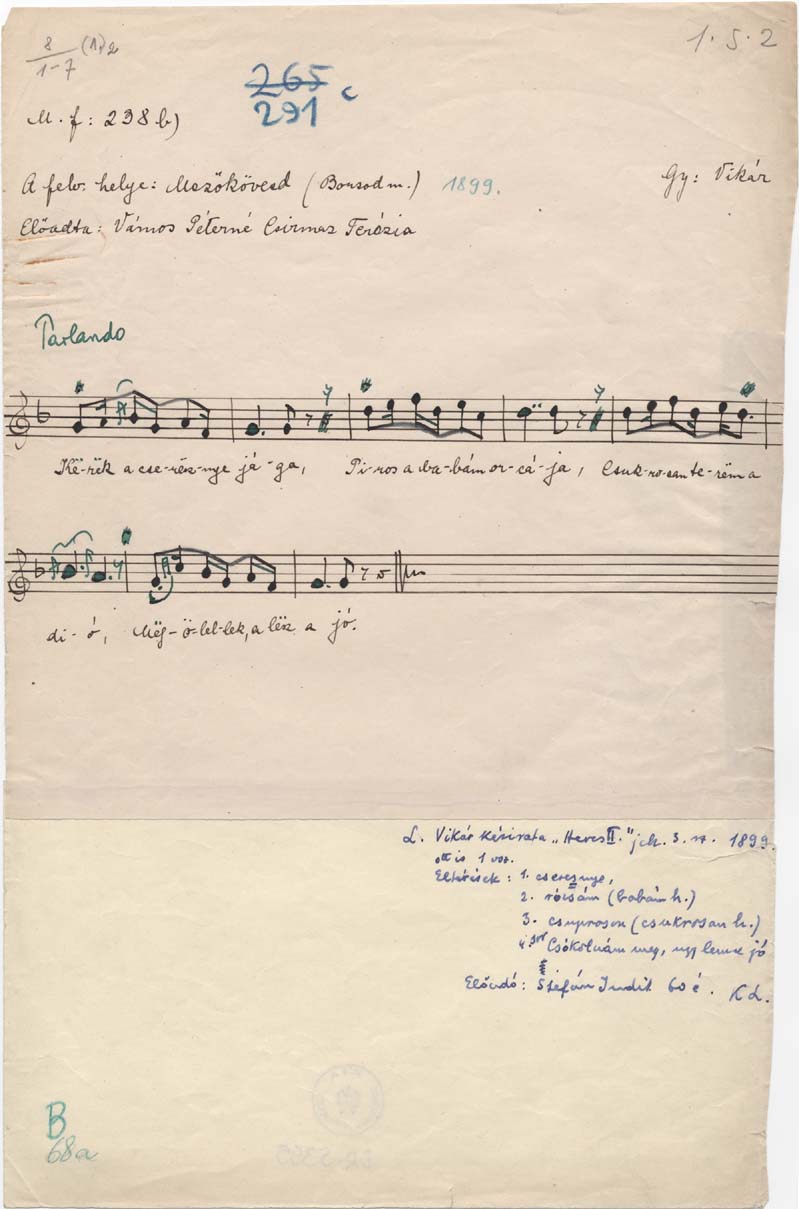 8/1-7 (1)2
1. 5. 2
265
291 c
M. f: 238 b)
A felv. helye: Mezőkövesd (Borsod m.) 1899.
Gy: Vikár
Előadta: Vámos Péterné Csirmaz Terézia
Parlando
Kë-rëk a cse-rész-nye já-ga, Pi-ros a ba-bám or-cá-ja, Csuk-ro-san te-rëm a
di-ó, Mëg-ö-lel-lek, a lësz a jó.
L. Vikár kézirata „Heves II." jch. 3. sz. 1899.
ott is 1 vsz.
Eltérések: 1. cseresznye,
2. rózsám (babám h.)
3. csuproson (csukrosan h.)
4 sor Csókolnám meg, ugy lenne jó
Előadó: Stefán Judit 60 é. KL.
B
68a